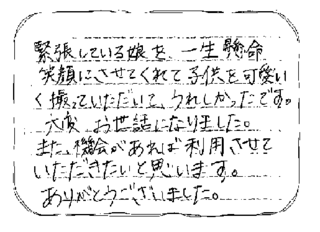 緊張している娘を、一生懸命
笑顔にさせてくれて子供を可愛い
く撮っていただいて、うれしかったです。
大変、お世話になりました。
また、機会があれば利用させて
いただきたいと思います。
ありがとうございました。